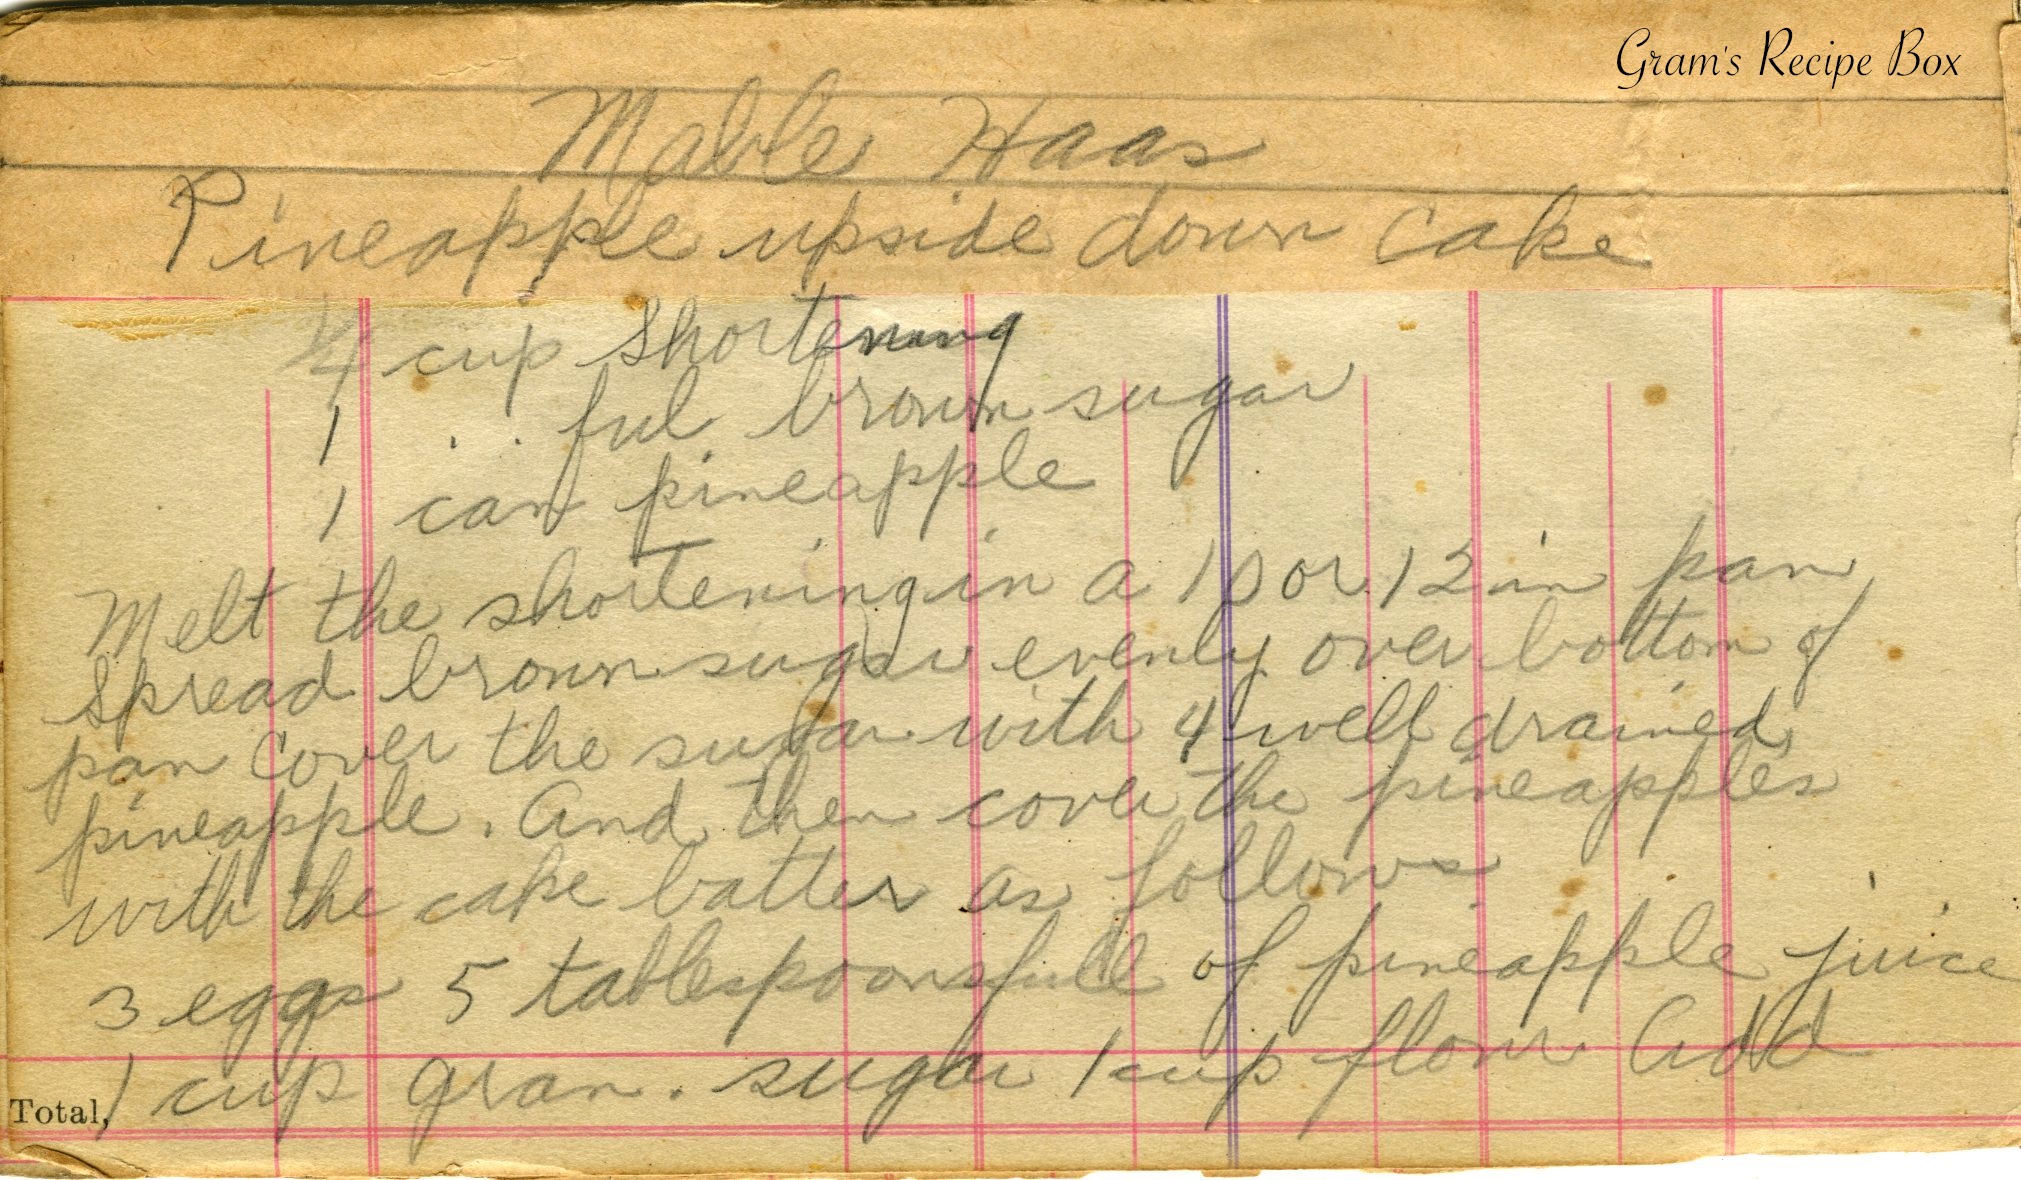 Gram's Recipe Box
Mable Haas
Pineapple upside down cake
1/4 cup shortening
1 . . ful brown sugar
1 can pineapple
Melt the shortening in a 10 or 12 in pan
spread brown sugar evenly over bottom of
pan cover the sugar with 4 well drained
pineapple. And then cover the pineapples
with the cake batter as follows.
3 eggs 5 tablespoonsfull of pineapple juice
1 cup gran. sugar 1 cup flour Add
Total,